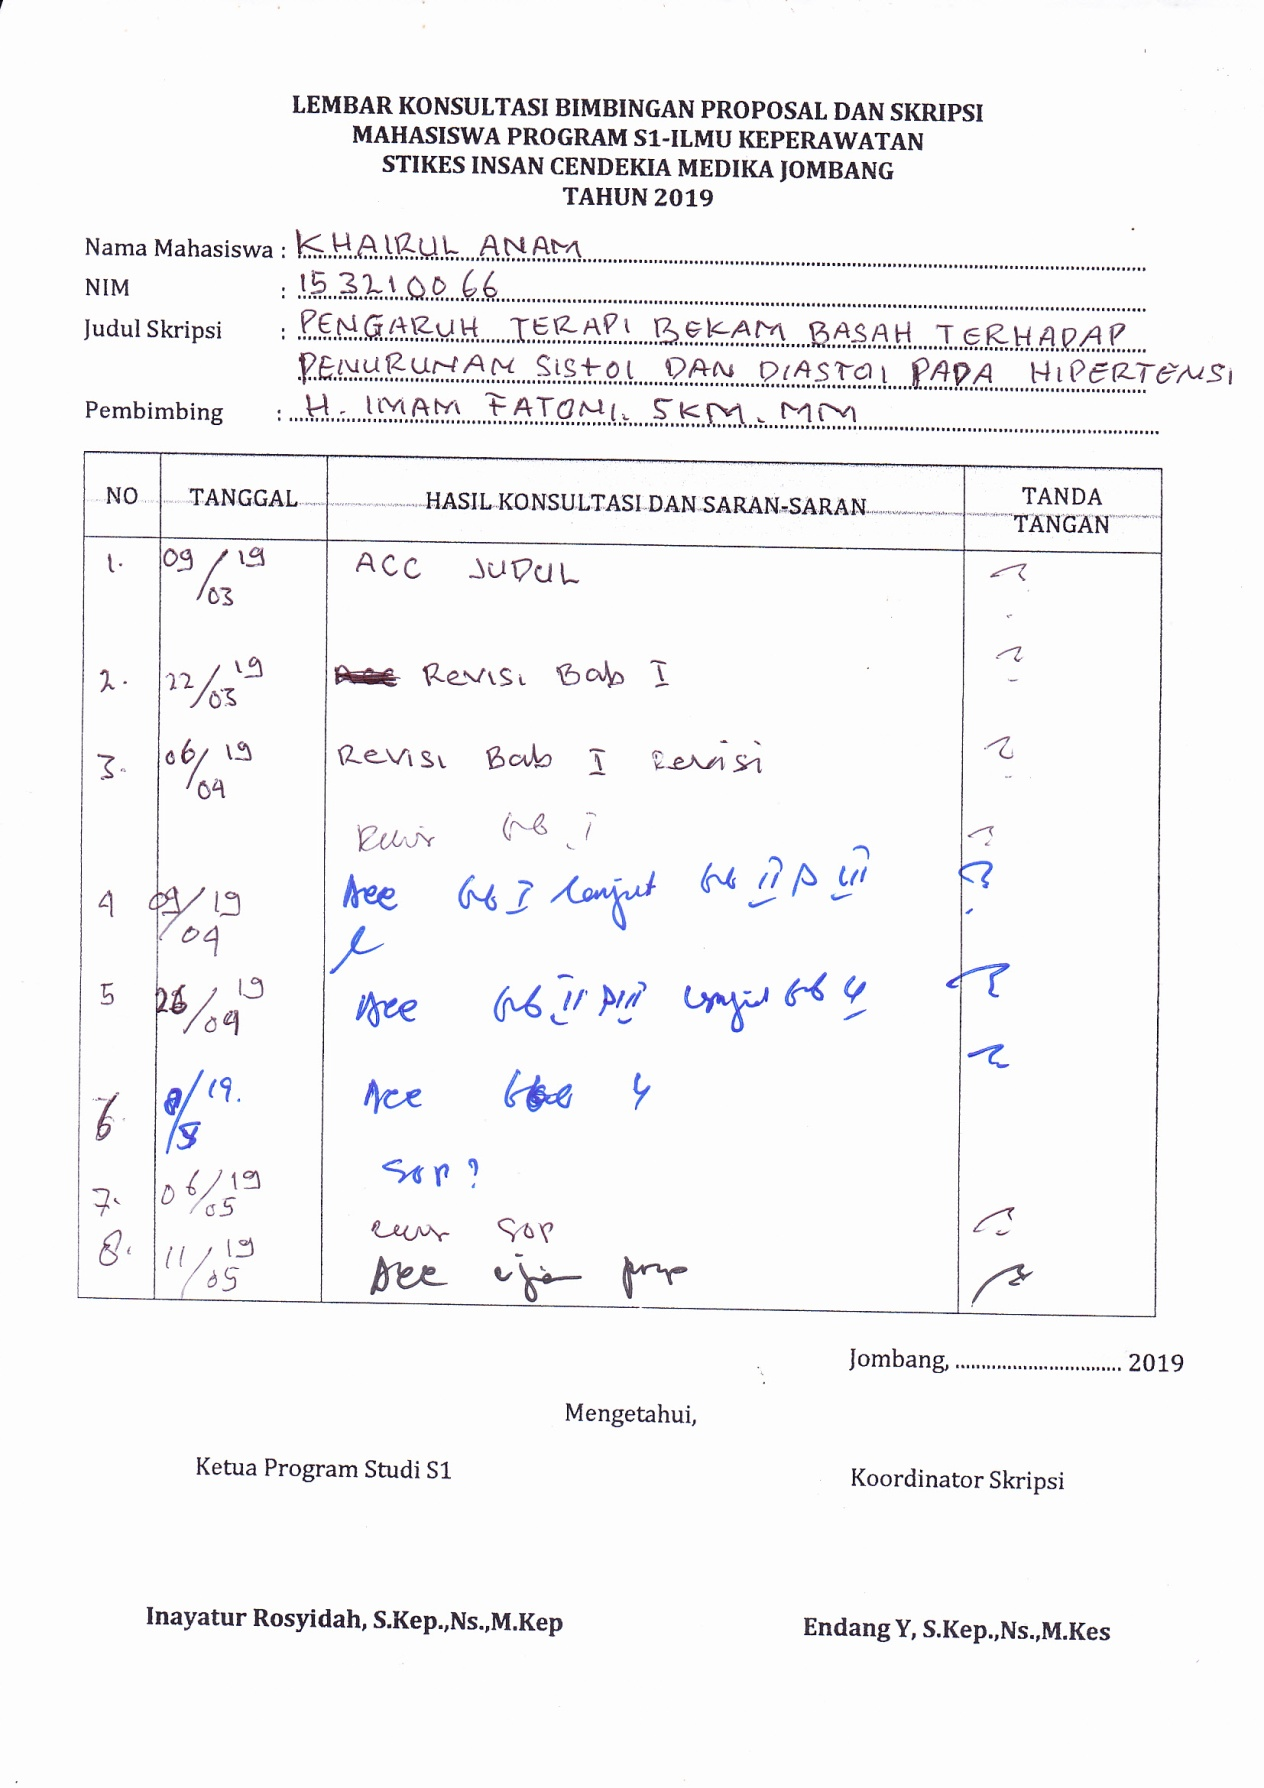 LEMBAR KONSULTASI BIMBINGAN PROPOSAL DAN SKRIPSI
MAHASISWA PROGRAM S1-ILMU KEPERAWATAN
STIKES INSAN CENDEKIA MEDIKA JOMBANG
TAHUN 2019
Nama Mahasiswa : KHAIRUL ANAM
NIM : 153210066
Judul Skripsi : PENGARUH TERAPI BEKAM BASAH TERHADAP
PENURUNAN Sistol DAN DIASTOl PADA HIPERTENSI
Pembimbing : H. IMAM FATONI. SKM. MM
NO TANGGAL HASIL KONSULTASI DAN SARAN-SARAN TANDA TANGAN
1. 09/03 19 ACC JUDUL
2. 22/03 19 Revisi Bab I
3. 06/04 19 Revisi Bab I Revisi
Revisi bab I
4 09/04 19 Acc bab I lanjut bab II III
5 26/04 19 Acc bab II III lanjut bab 4
6 19. Acc 4
7. 06/05 19 SOP?
revisi SOP
8. 11/05 19 Acc ujian prop
Jombang, .............................. 2019
Mengetahui,
Ketua Program Studi S1 Koordinator Skripsi
Inayatur Rosyidah, S.Kep.,Ns.,M.Kep Endang Y, S.Kep.,Ns.,M.Kes